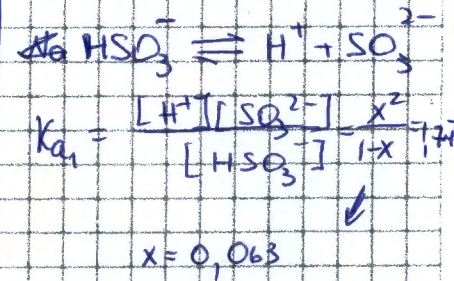 HSO₃⁻ ⇌ H⁺ + SO₃²⁻
Ka₁ = [H⁺][SO₃²⁻] / [HSO₃⁻] = x² / 1-x =
x = 0,063